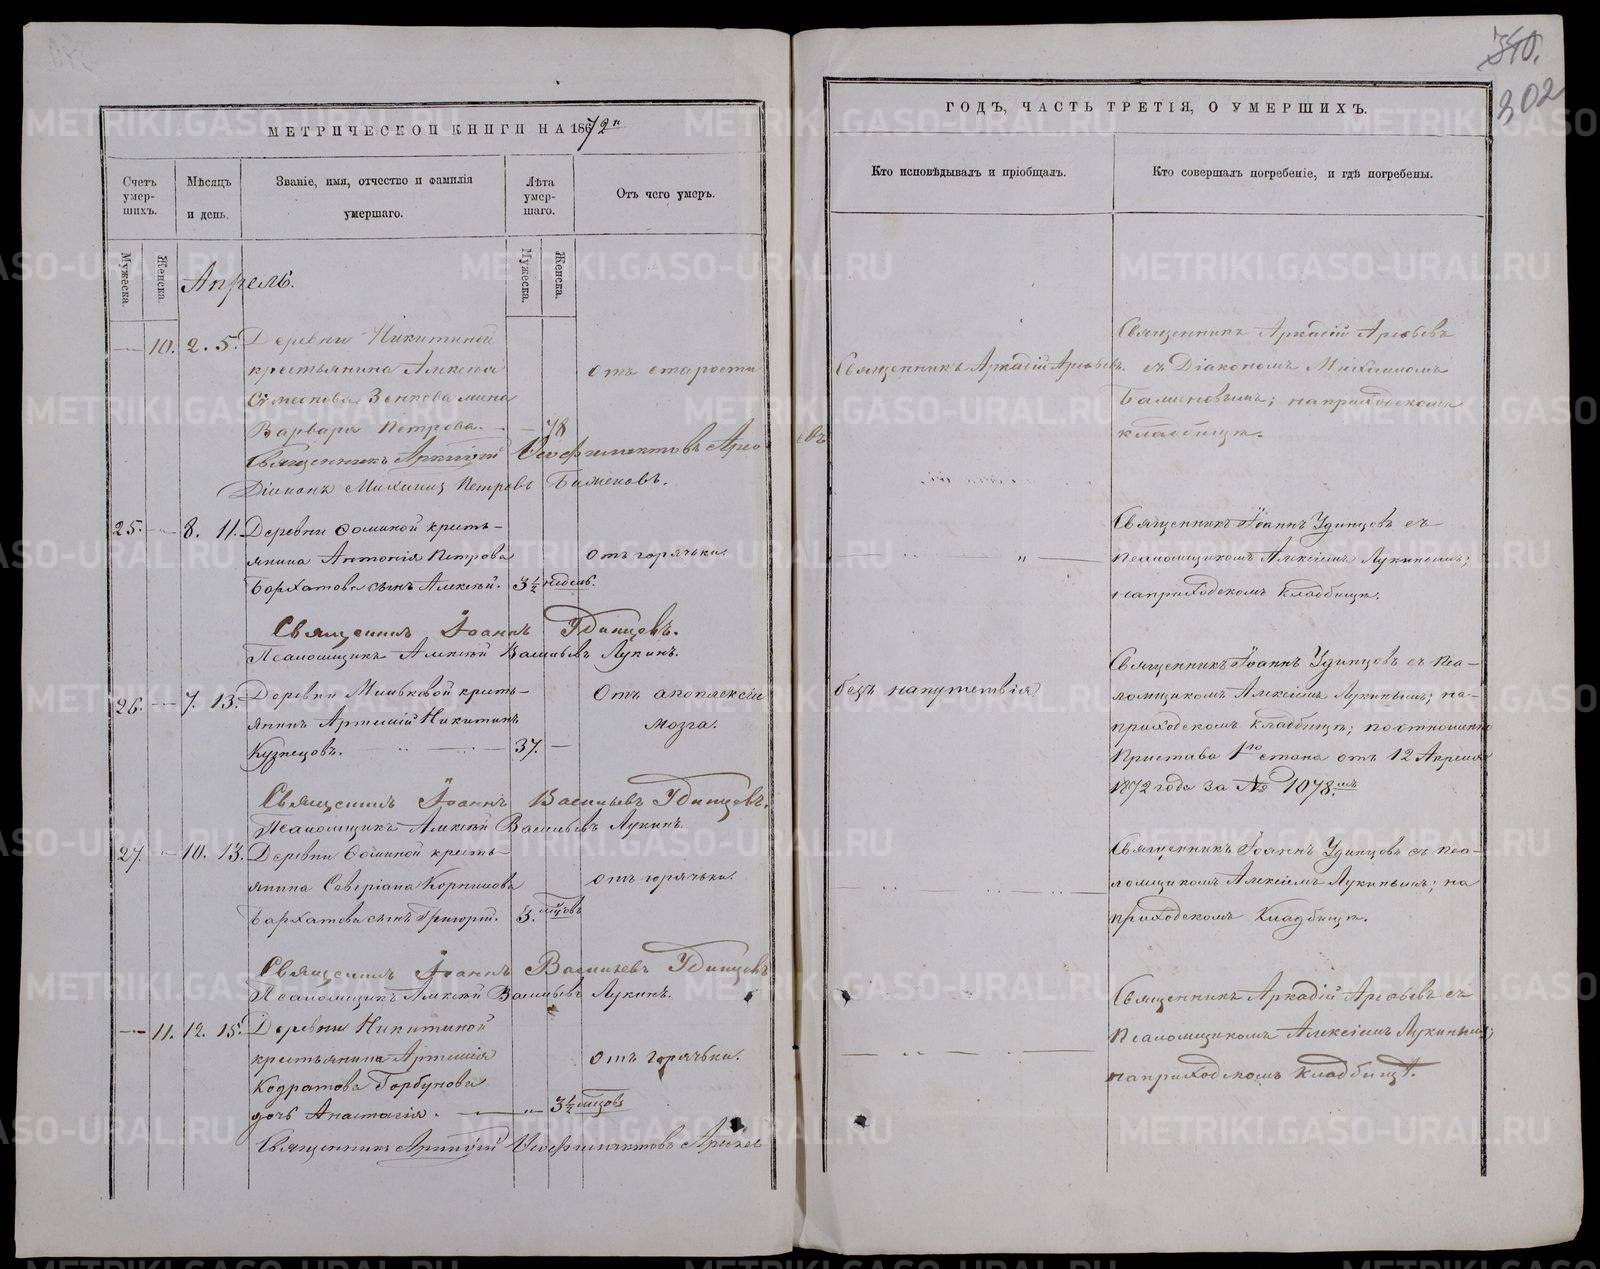 МЕТРИЧЕСКОЙ КНИГИ НА 1872й
Счетъ умер-шихъ.
Мужеска.
Женска.
Мѣсяцъ и день.
Званіе, имя, отчество и фамилія умершаго.
Лѣта умер-шаго.
Мужеска.
Женска.
Отъ чего умеръ.
Апрель.
10. 2. 5. Деревни Никитиной
крестьянина Алексѣя
Семеонова Зенкова жена
Варвара Петрова. 78
отъ старости
Священникъ Аркадій Феофилактовъ Арефьевъ
Діаконъ Михаилъ Петровъ Баженовъ.
25. 8. 11. Деревни Фоминой кресть-
янина Антонія Петрова
Бархатова сынъ Алексѣй. 3½ недель.
отъ горячьки.
Священникъ Іоаннъ Удинцовъ.
Псаломщикъ Алексѣй Васильевъ Лукинъ.
26. 7. 13. Деревни Мильковой кресть-
янинъ Артемій Никитинъ
Кузнецовъ. 37.
Отъ апоплексіи
мозга.
Священникъ Іоаннъ Васильевъ Удинцовъ.
Псаломщикъ Алексѣй Васильевъ Лукинъ.
27. 10. 13. Деревни Фоминой кресть-
янина Северіана Корнилова
Бархатова сынъ Григорій. 3. мѣсцовъ
отъ горячьки.
Священникъ Іоаннъ Васильевъ Удинцовъ
Псаломщикъ Алексѣй Васильевъ Лукинъ.
11. 12. 15. Деревни Никитиной
крестьянина Артемія
Кодратова Горбунова
дочь Анастасія. 3½ мѣсцовъ
отъ горячьки.
Священникъ Аркадій Феофилактовъ Арефьев
340.
302
ГОДЪ, ЧАСТЬ ТРЕТІЯ, О УМЕРШИХЪ.
Кто исповѣдывалъ и пріобщалъ.
Кто совершалъ погребеніе, и гдѣ погребены.
Священникъ Аркадій Арефьевъ.
Священникъ Аркадій Арефьевъ
съ Діакономъ Михаиломъ
Баженовымъ; на приходскомъ
кладбищѣ.
Священникъ Іоаннъ Удинцовъ съ
псаломщикомъ Алексіемъ Лукинымъ;
на приходскомъ кладбищѣ.
безъ напутствія
Священникъ Іоаннъ Удинцовъ съ пса-
ломщикомъ Алексіемъ Лукинымъ; на-
приходскомъ кладбищѣ; по отношенію
Пристава 1го стана отъ 12 Апреля
1872 года за № 1078.мъ
Священникъ Іоаннъ Удинцовъ съ пса-
ломщикомъ Алексіемъ Лукинымъ; на
приходскомъ кладбищѣ.
Священникъ Аркадій Арефьевъ съ
Псаломщикомъ Алексіемъ Лукинымъ;
на приходскомъ кладбищѣ.
METRIKI.GASO-URAL.RU